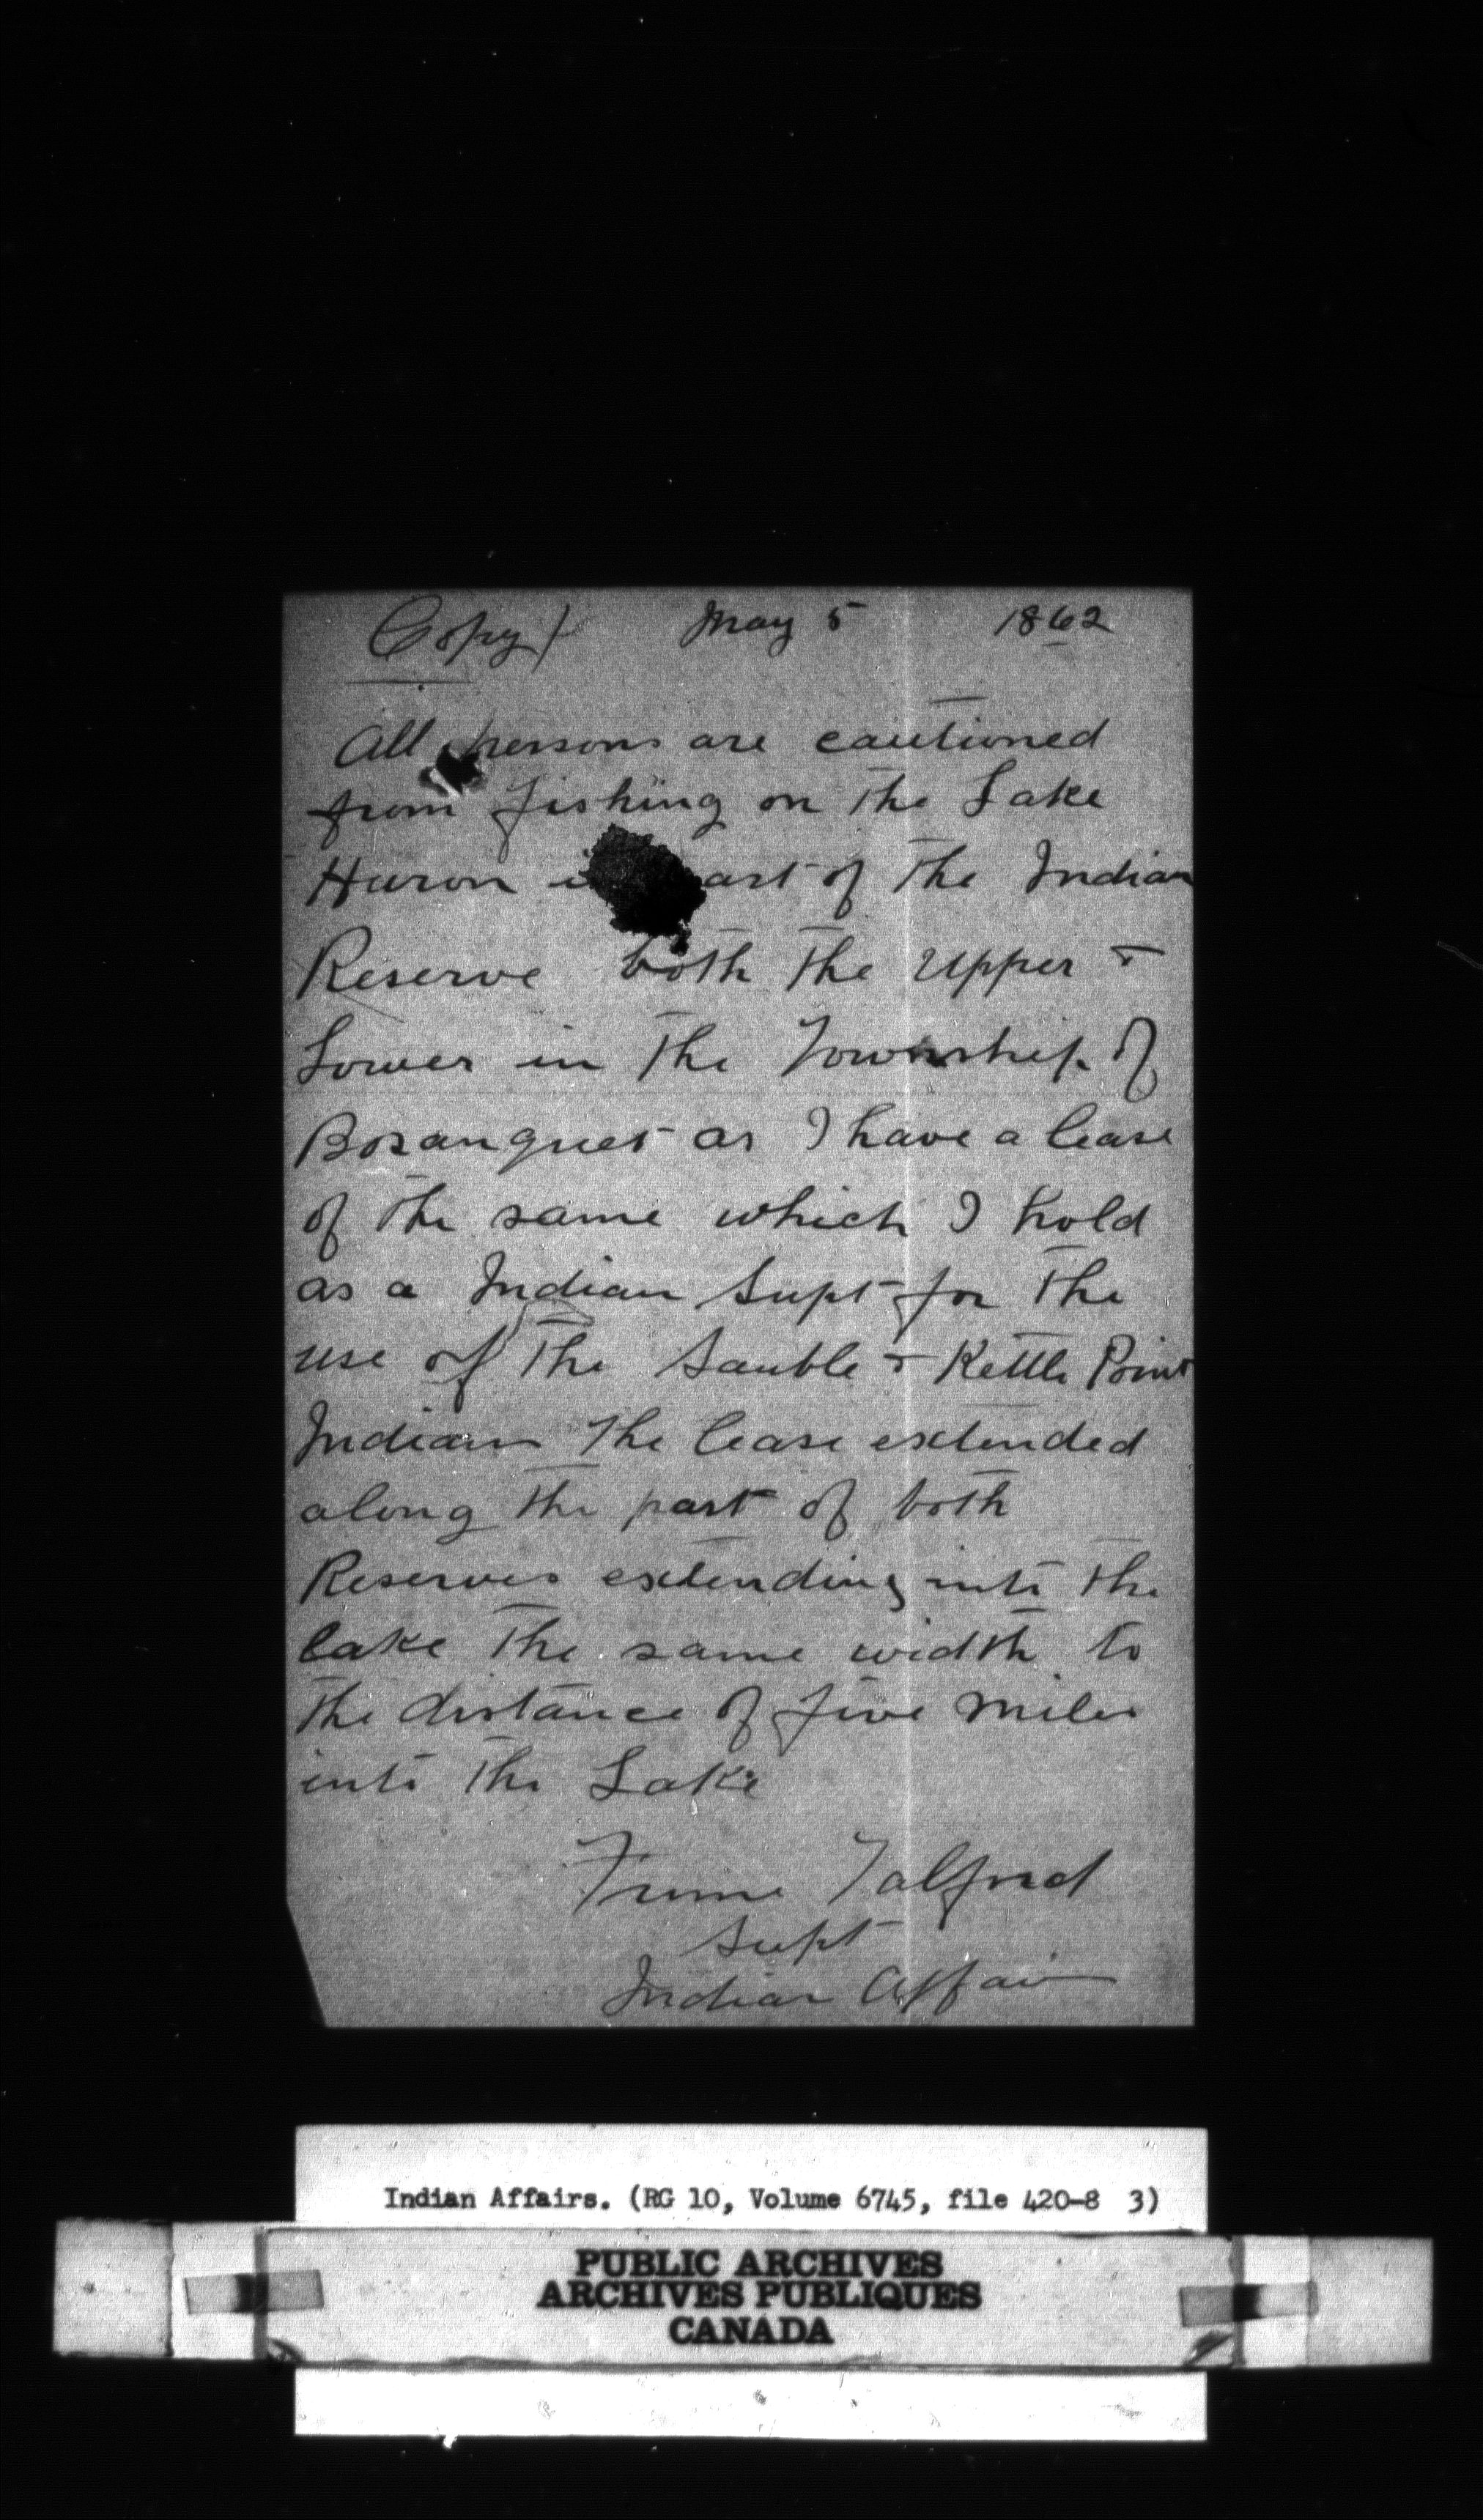 Copy/ May 5 1862
All persons are cautioned
from fishing on the Lake
Huron of the Indian
Reserve both the Upper &
Lower in the Township of
Bosanquet as I have a lease
of the same which I hold
as a Indian Supt for the
use of the Sauble & Kettle Point
Indians The lease extended
along the part of both
Reserves extending into the
lake the same width to
the distance of five miles
into the Lake
Froome Talfred
Supt
Indian Affairs
Indian Affairs. (RG 10, Volume 6745, file 420-8 3)
PUBLIC ARCHIVES
ARCHIVES PUBLIQUES
CANADA